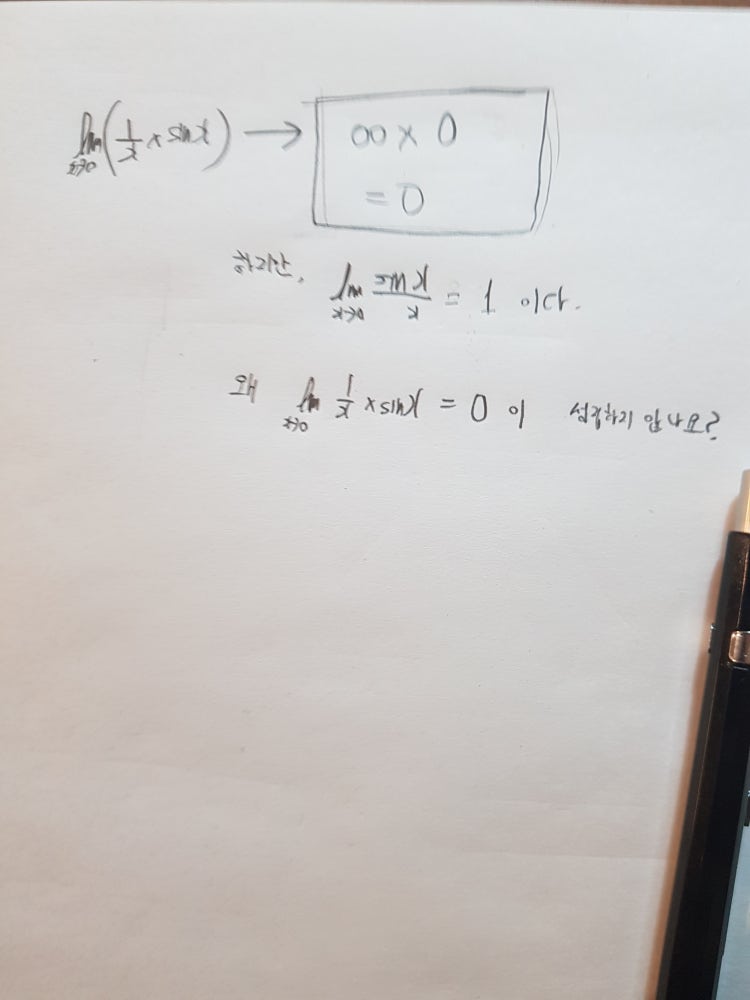 lim x→0 (1/x × sinx) → ∞ × 0
= 0
하지만, lim x→0 sinx/x = 1 이다.
왜 lim x→0 1/x × sinx = 0 이 성립하지 않나요?